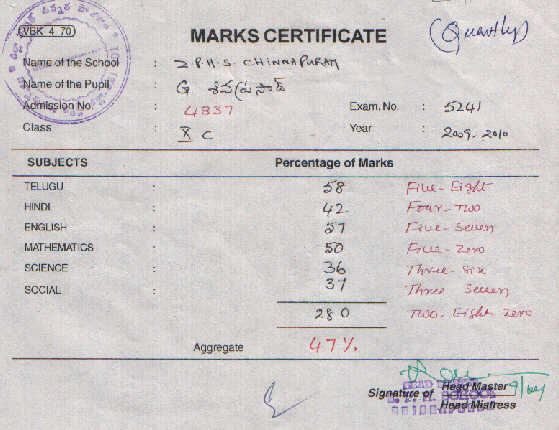 VBK 4 70
MARKS CERTIFICATE
(Quartly)
Name of the School : Z.P.H.S. CHINNAPURAM
Name of the Pupil : G శివప్రసాద్
Admission No. : 4837 Exam. No. : 5241
Class : X C Year : 2009-2010
SUBJECTS Percentage of Marks
TELUGU : 58 Five-Eight
HINDI 42 Four-Two
ENGLISH : 57 Five-Seven
MATHEMATICS : 50 Five-Zero
SCIENCE : 36 Three-Six
SOCIAL : 37 Three Seven
280 Two-Eight Zero
Aggregate 47%
Signature of Head Master
Head Mistress